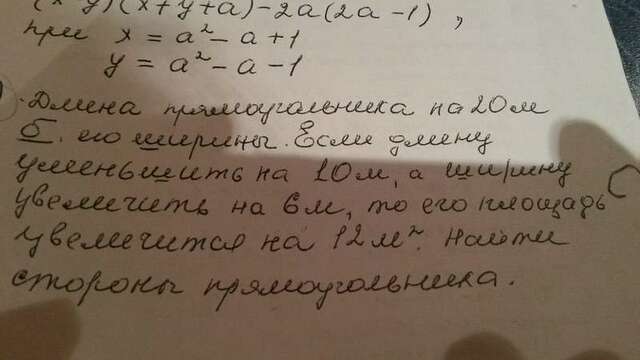 (x+y+a) - 2a(2a-1),
при x = a² - a + 1
y = a² - a - 1
Длина прямоугольника на 20 м
б. его ширины. Если длину
уменьшить на 10 м, а ширину
увеличить на 6 м, то его площадь
увеличится на 12 м². Найти
стороны прямоугольника.